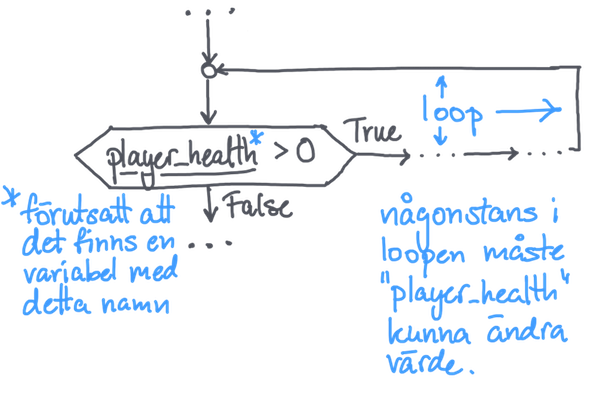 ...
loop
player_health* > 0
True
... ...
False
...
*förutsatt att
det finns en
variabel med
detta namn
någonstans i
loopen måste
"player_health"
kunna ändra
värde.